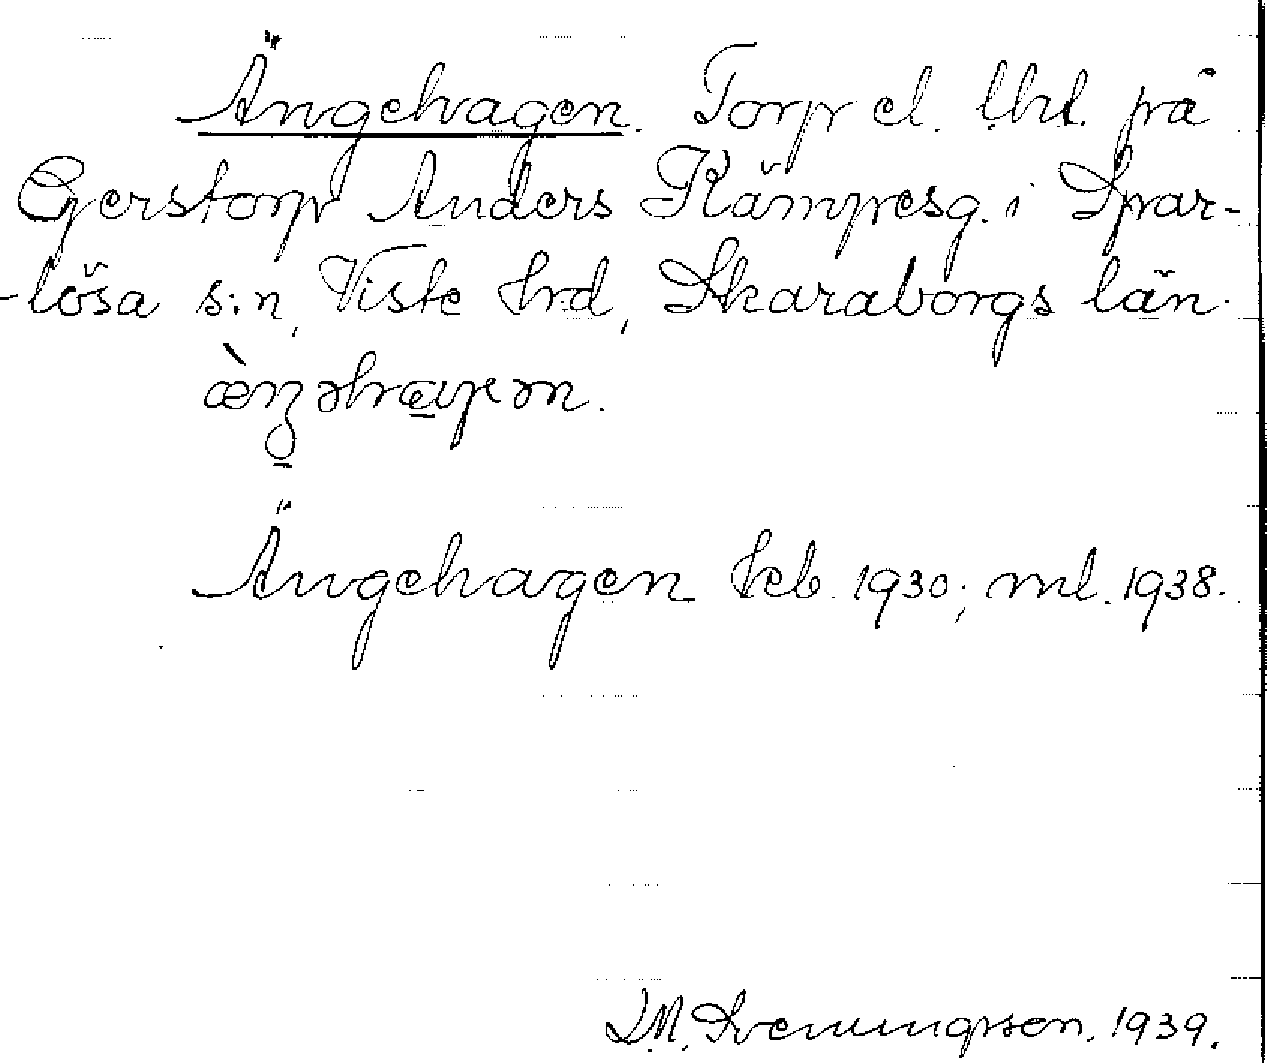 Ängehagen. Torp el. lht. på
Gerstorp Anders Kämpesg. i Spar-
-lösa s:n, Viste hrd, Skaraborgs län.
Ängehagen kb. 1930; ml. 1938.
Svenungsson. 1939.